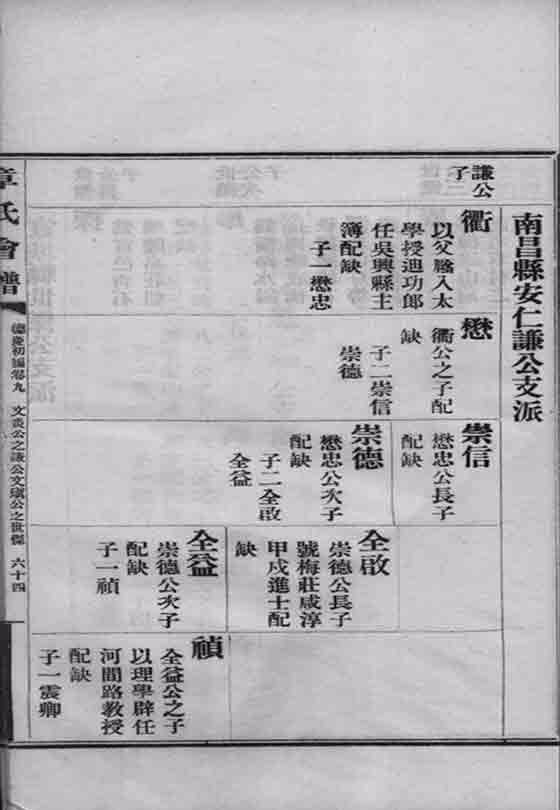 南昌縣安仁謙公支派
謙公
子
衢
以父廕入太
學授迪功郎
任吳興縣主
簿配缺
子一懋忠
懋
衢公之子配
缺
子二崇信
崇德
崇信
懋忠公長子
配缺
崇德
懋忠公次子
配缺
子二全啟
全益
全啟
崇德公長子
號梅莊咸淳
甲戌進士配
缺
全益
崇德公次子
配缺
子一禎
禎
全益公之子
以理學辟任
河間路教授
配缺
子一震卿
章氏會譜
德慶初編卷九
之謙公文
公之世
六十四